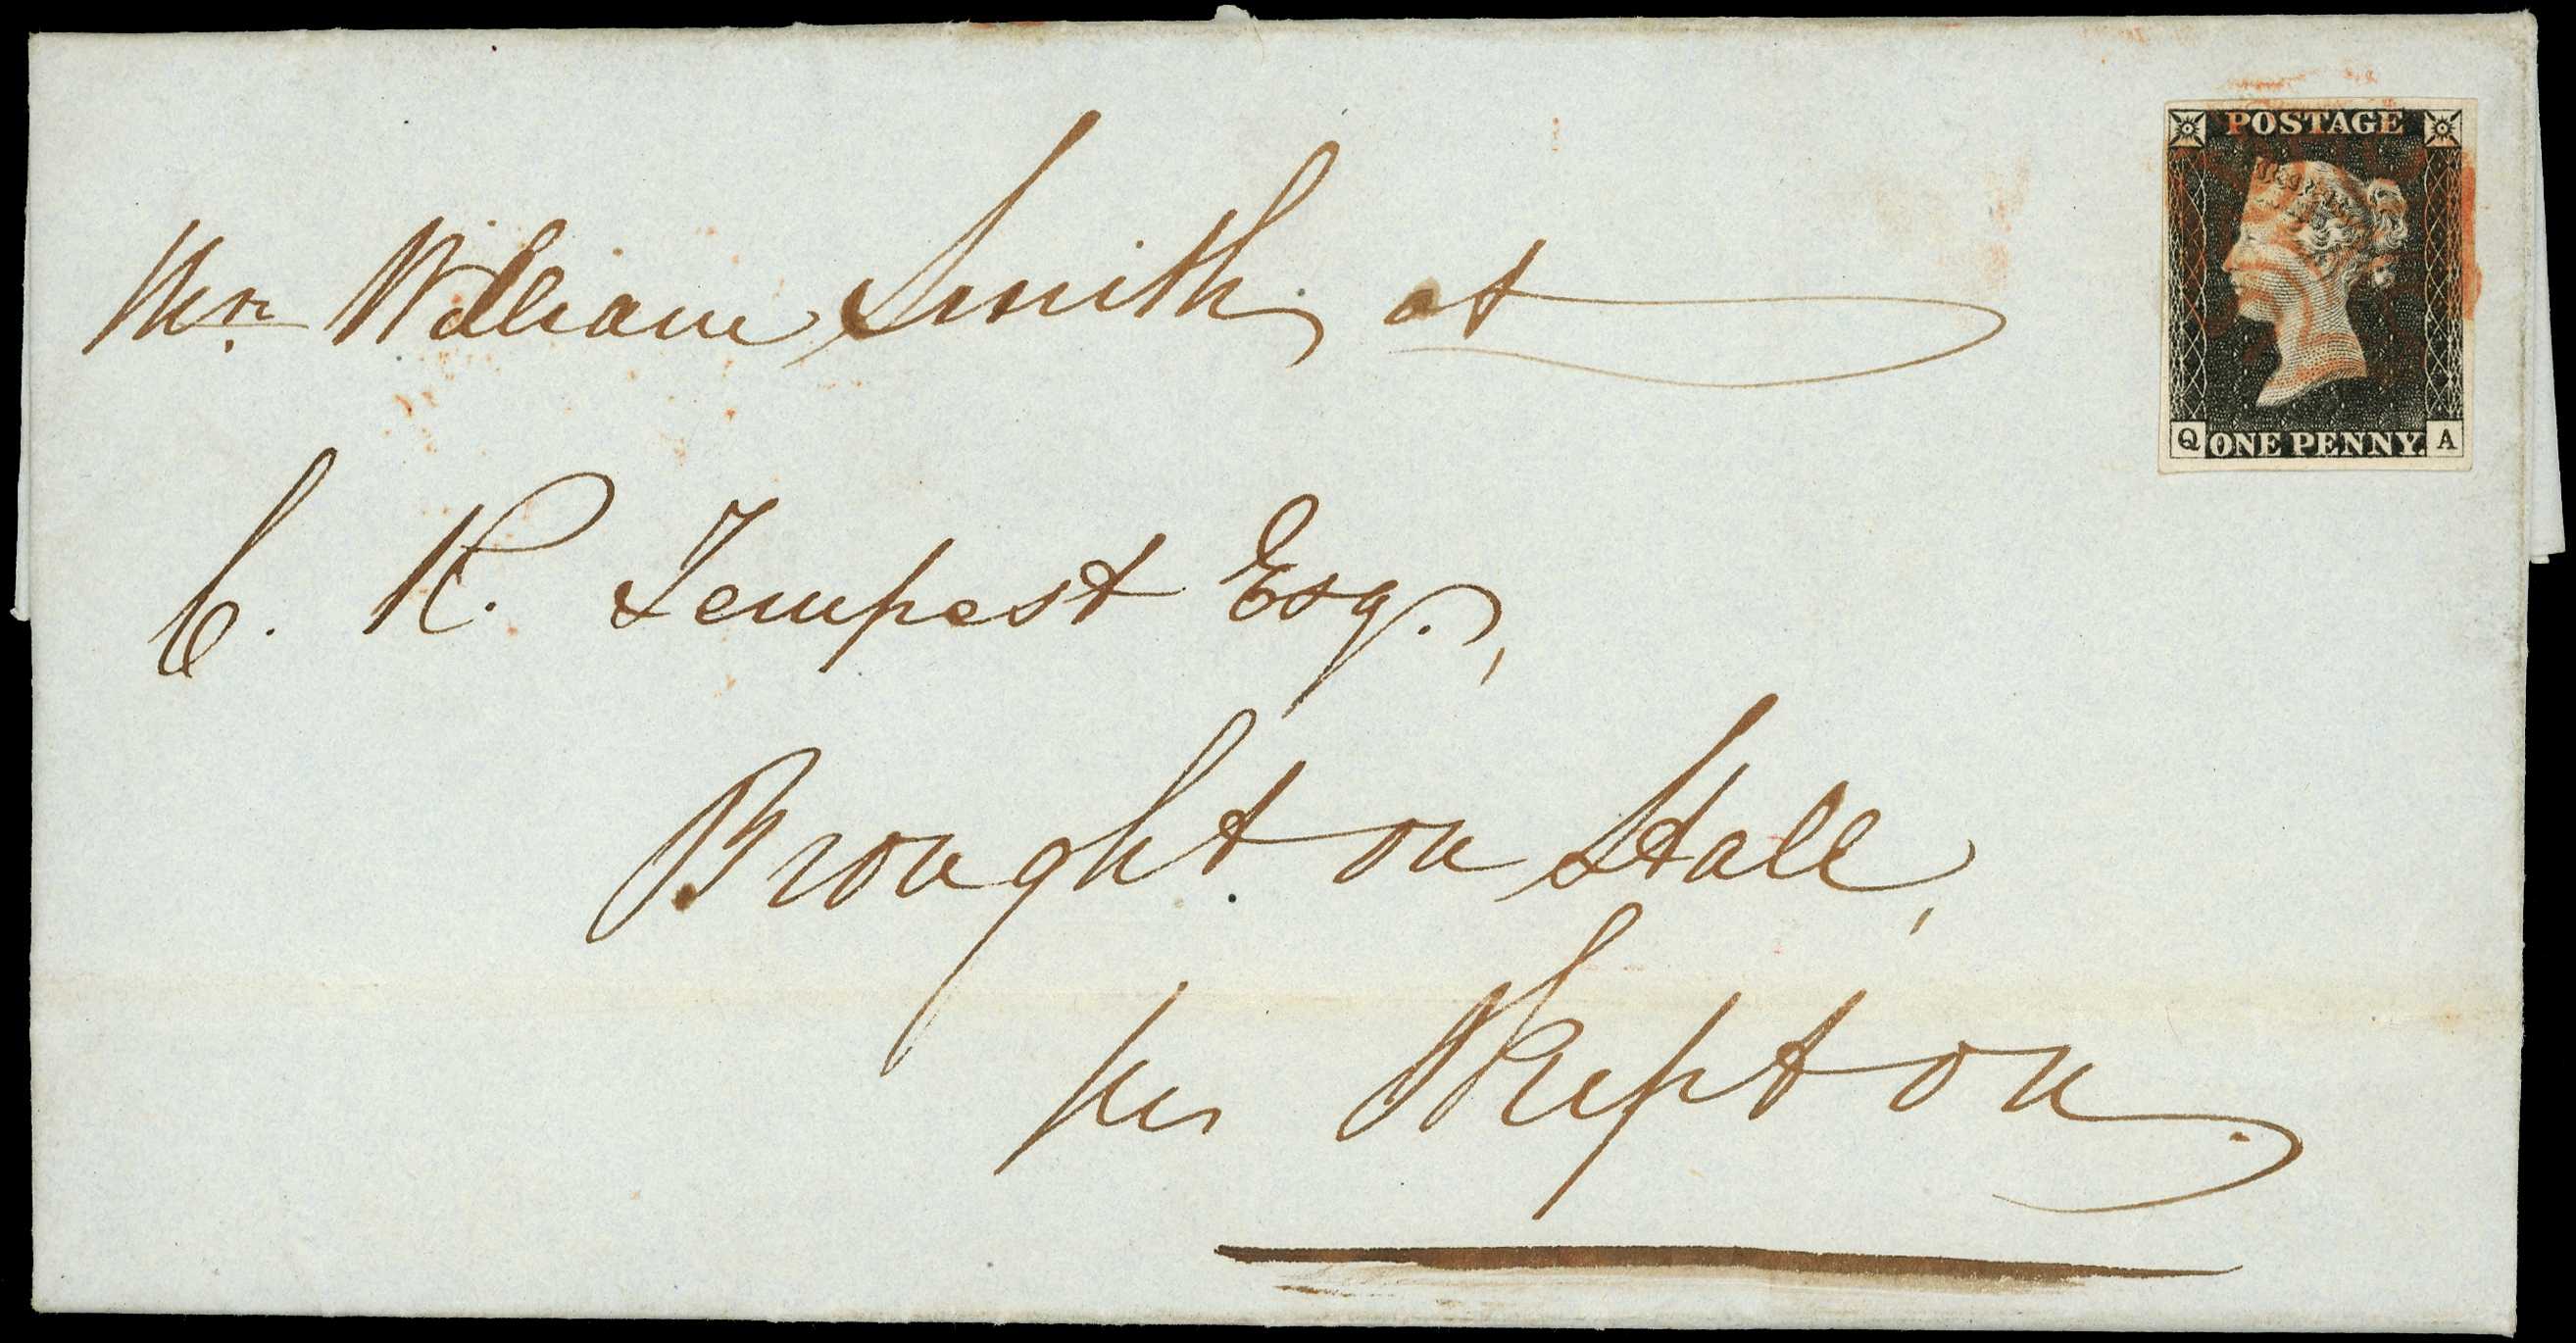 POSTAGE
Mr. William Smith, at
C. R. Tempest Esq.,
Q ONE PENNY. A
Broughton Hall,
per Skipton.